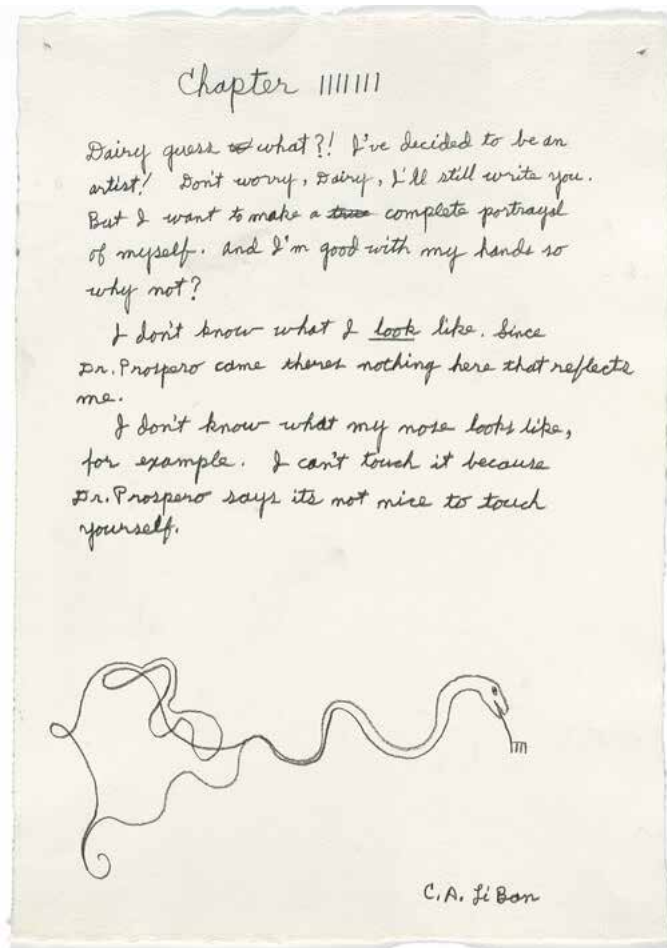 Chapter |||||||
Dairy guess what?! I've decided to be an
artist! Don't worry, Dairy, I'll still write you.
But I want to make a complete portrayal
of myself. and I'm good with my hands so
why not?
I don't know what I look like. Since
Dr. Prospero came theres nothing here that reflects
me.
I don't know what my nose looks like,
for example. I can't touch it because
Dr. Prospero says its not nice to touch
yourself.
C.A. Li Ban